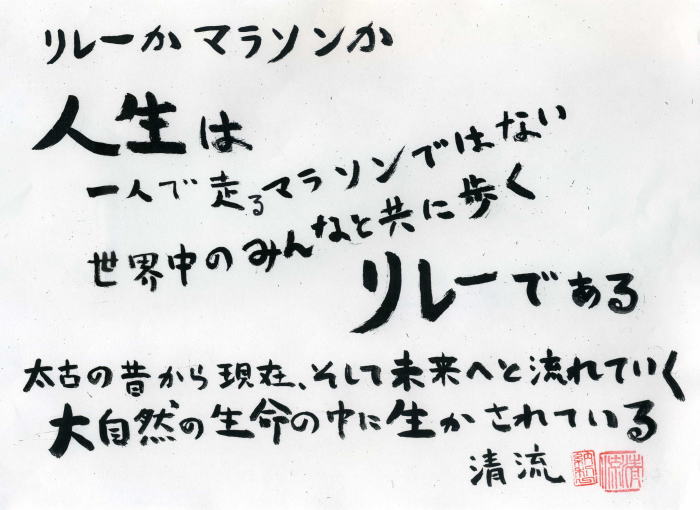 リレーか マラソンか
人生は
一人で走るマラソンではない
世界中のみんなと共に歩く
リレーである
太古の昔から現在、そして未来へと流れていく
大自然の生命の中に生かされている
清流